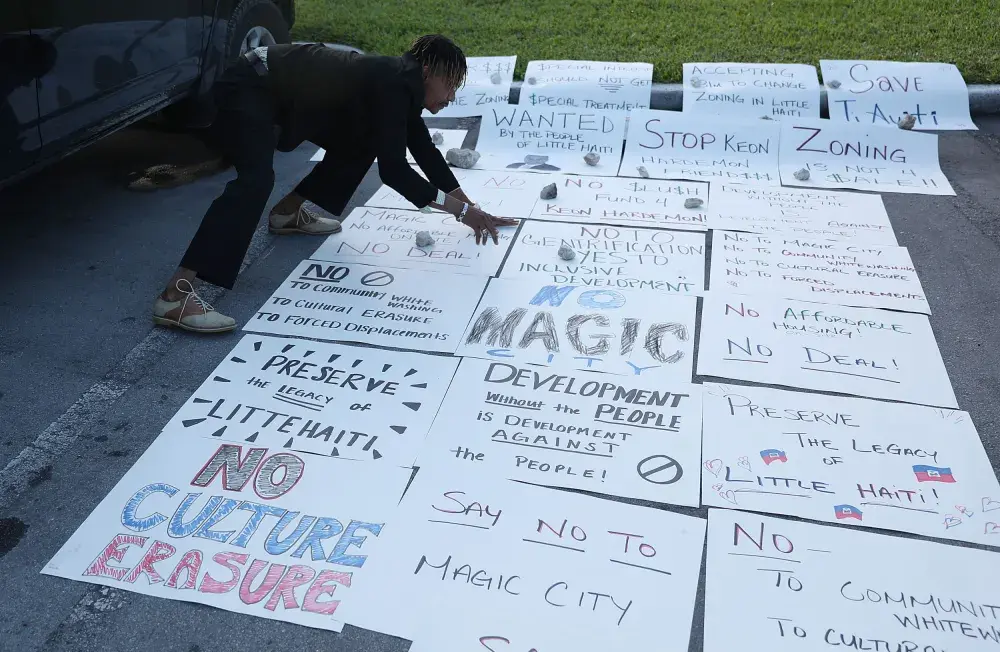 $$$
ZONING
SHOULD NOT GET
$PECIAL TREATMENT
ACCEPTING
TO CHANGE
ZONING IN LITTLE
HAITI
SAVE
WANTED
BY THE PEOPLE
OF LITTLE HAITI
STOP KEON
HARDEMON
ZONING
IS NOT 4
$ALE!!!
NO
MAGIC
NO $LU$H
FUND 4
KEON HARDEMON
DEVELOPMENT
WITHOUT THE
IS
AGAINST
NO AFFORDABLE
NO DEAL!
NO TO
GENTRIFICATION
YES TO
INCLUSIVE
DEVELOPMENT
NO TO MAGIC CITY
NO TO COMMUNITY
WHITEWASHING
NO TO CULTURAL ERASURE
NO TO FORCED
DISPLACEMENTS
NO
TO COMMUNITY WHITE
WASHING
TO CULTURAL ERASURE
TO FORCED DISPLACEMENTS
NO
MAGIC
CITY
NO AFFORDABLE
HOUSING!
NO DEAL!
PRESERVE
THE LEGACY OF
LITTLE HAITI
DEVELOPMENT
WITHOUT THE PEOPLE
IS DEVELOPMENT
AGAINST
THE PEOPLE!
PRESERVE
THE LEGACY
OF
LITTLE HAITI!
NO
CULTURE
ERASURE
SAY NO TO
MAGIC CITY
NO
TO COMMUNITY
WHITEW
TO CULTUR